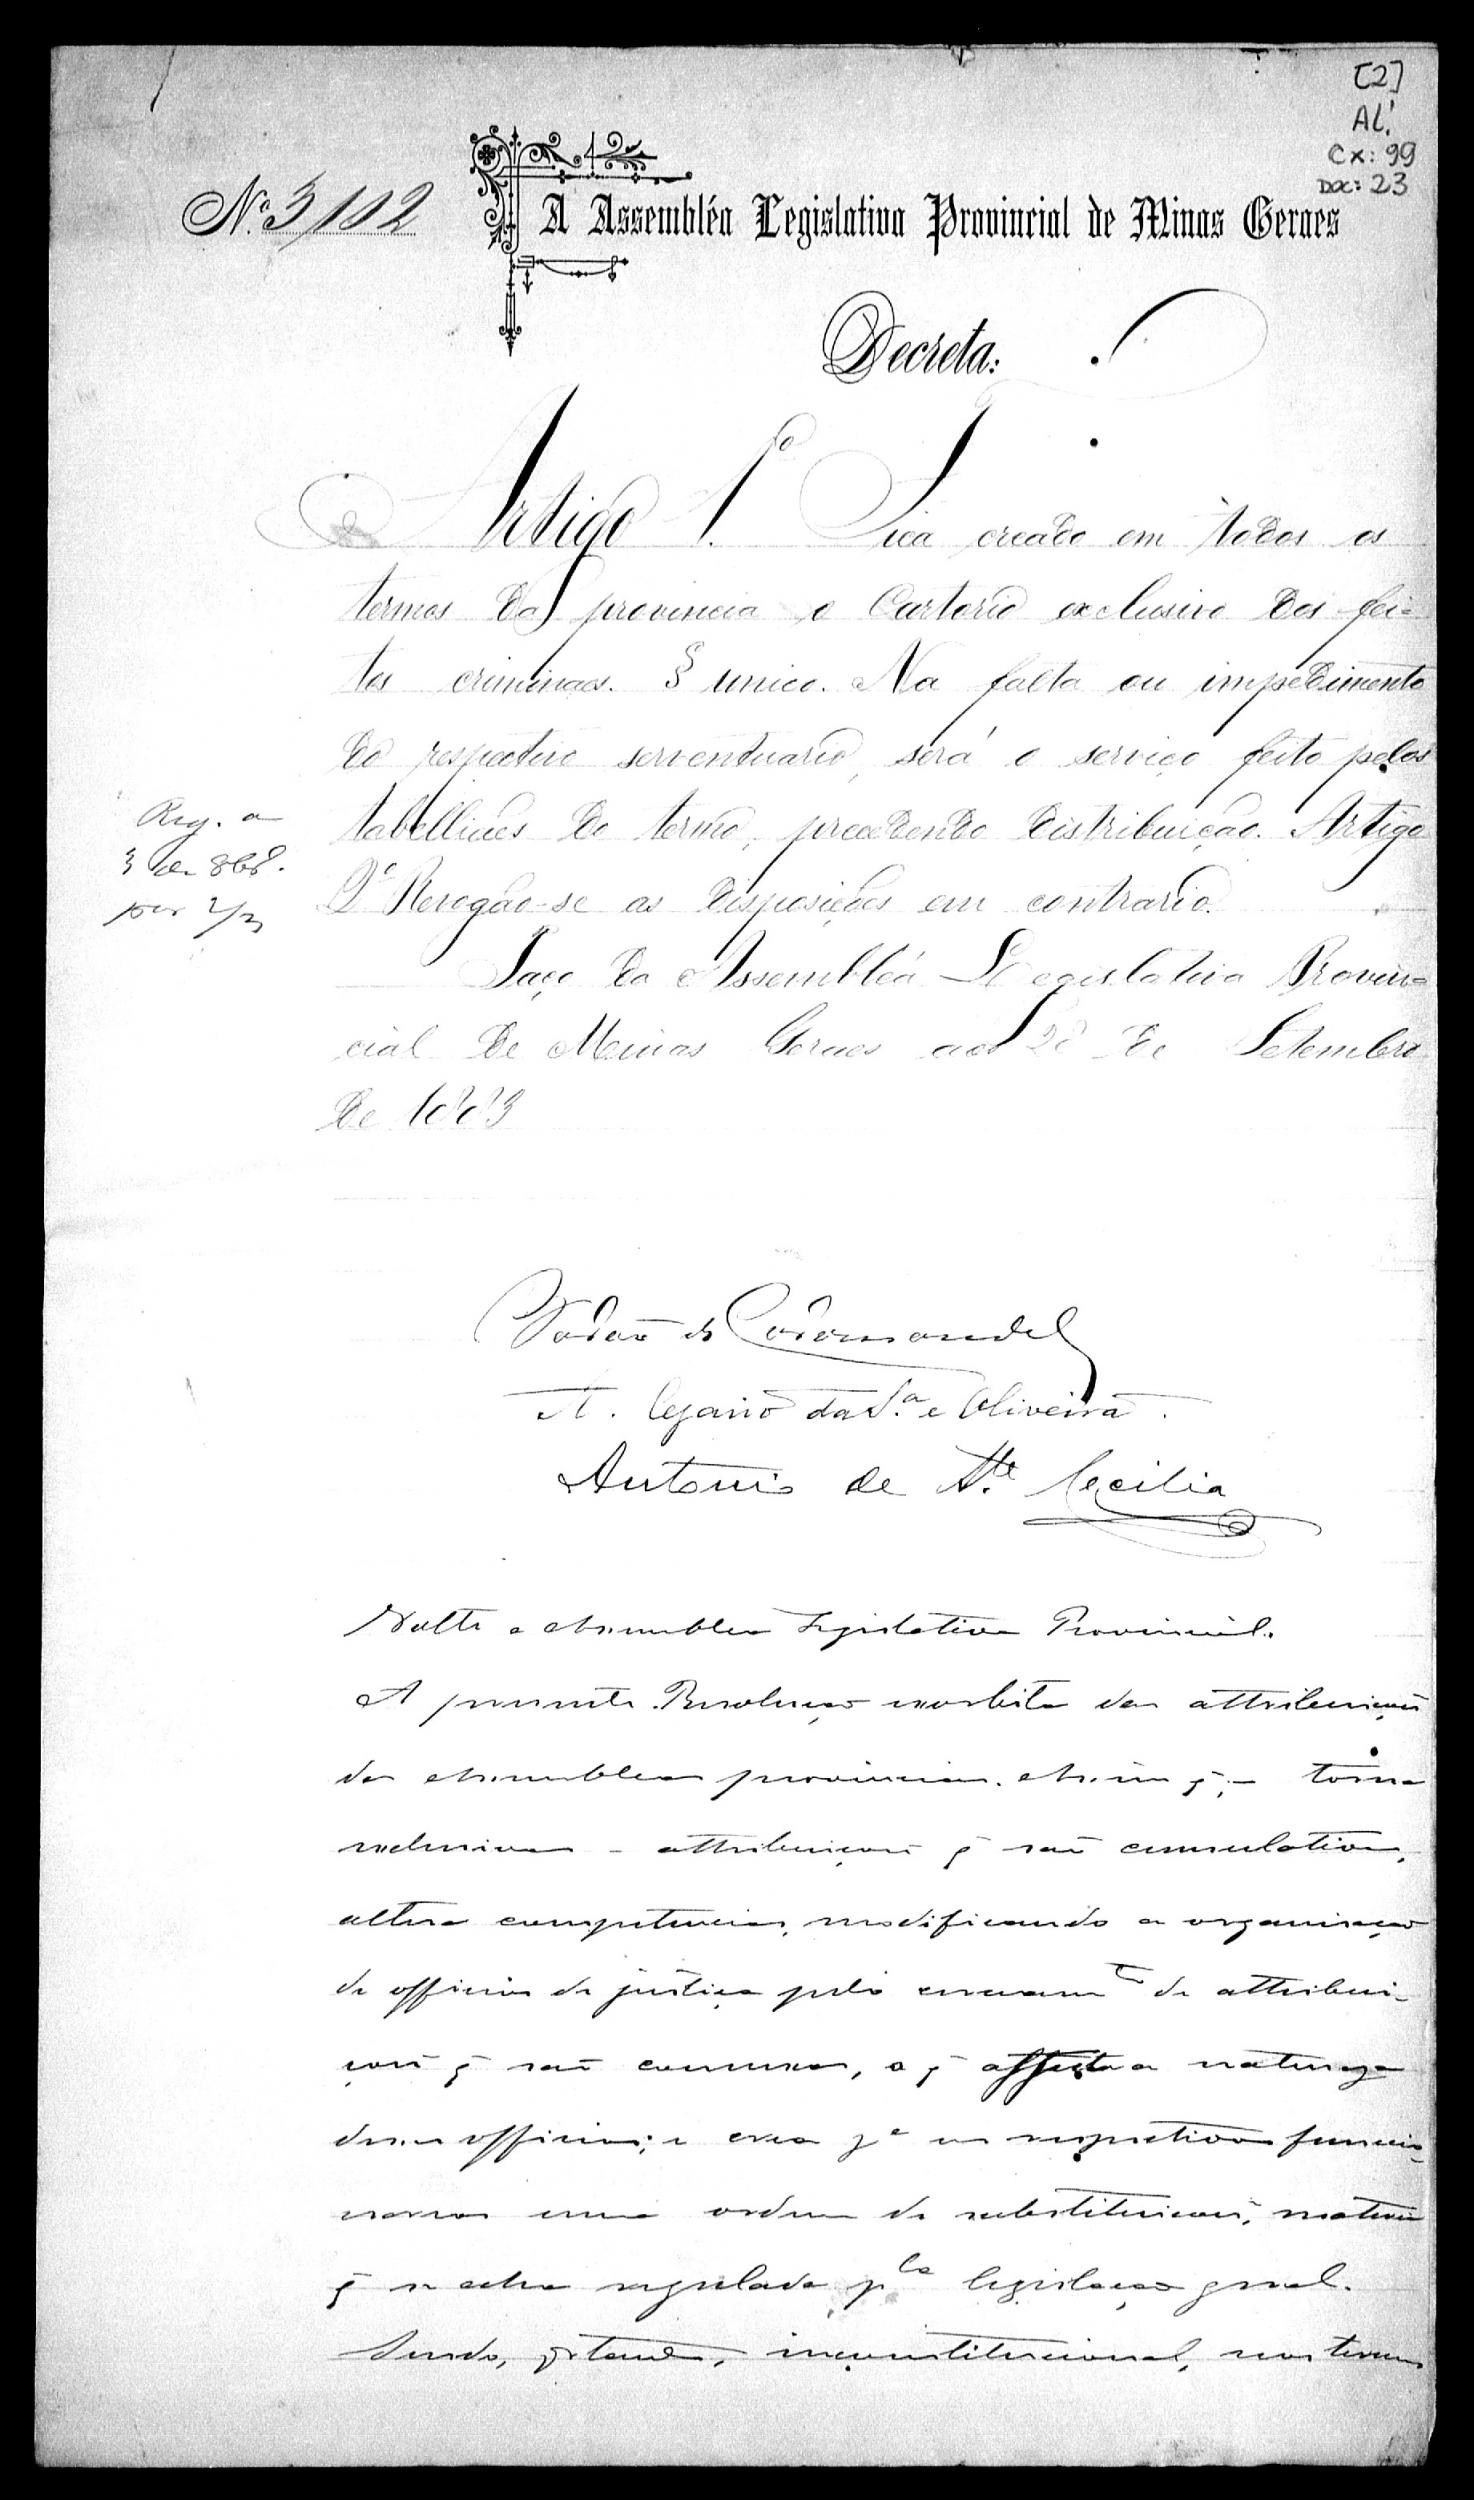 [2]
AL.
Cx: 99
Doc: 23
Nº 3/102
A Assembléa Legislativa Provincial de Minas Geraes
Decreta:
Artigo 1.º Fica creado em todos os
termos da provincia o Cartorio exclusivo dos fei-
tos criminaes. § unico. Na falta ou impedimento
do respectivo serventuario, será o serviço feito pelos
tabelliães do termo, precedendo distribuição. Artigo
2º Revogão-se as disposições em contrario.
Reg. a
3 de
por 2/3
Paço da Assembléa Legislativa Provin-
cial de Minas Geraes aos de Setembro
de 1883
Barão de Coromandel
A. Cezario da S.ª e Oliveira.
Antonio de S.ta Cecilia
Volte a Assemblea Legislativa Provincial.
A presente Resolução exorbita das attribuições
das Assembleas provinciaes. Assim q̃, torna
exclusivas attribuições q̃ são cumulativas,
altera competencias, modificando a organisação
de officios de justiça pelo de attribui-
ções q̃ são communs, o q̃ affecta a natureza
desses officios; e crea pª os respectivos funccio-
narios uma ordem de substituições, materia
q̃ se acha regulada pla legislação geral.
Sendo, portanto, inconstitucional, nos termos